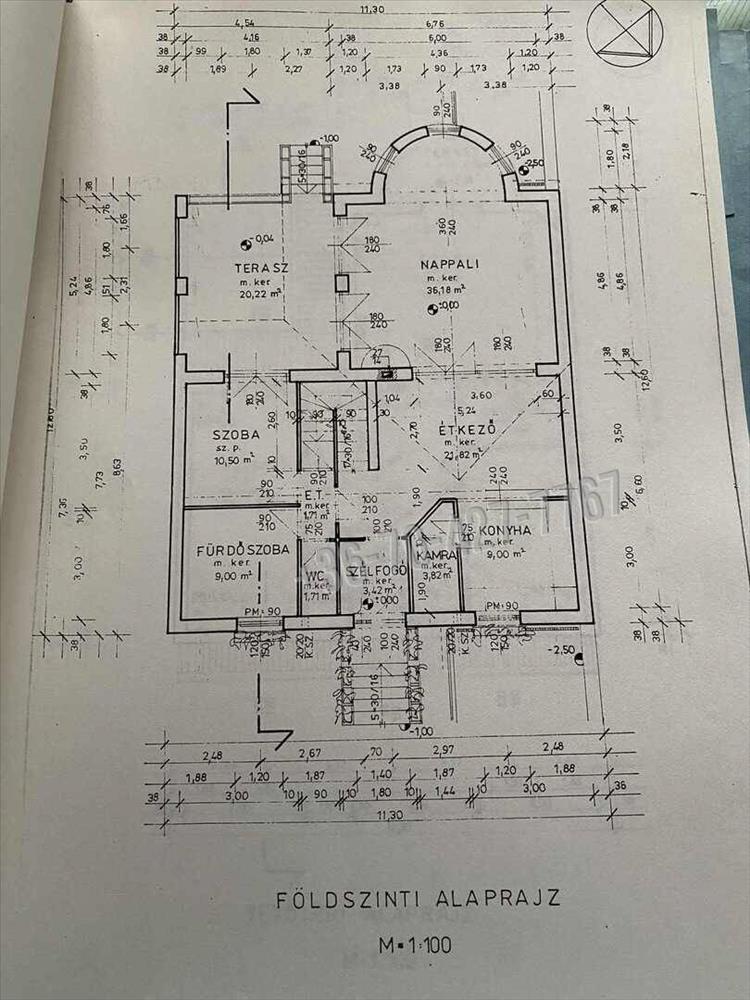 11,30
4,54 6,76
38 4,16 38 6,00 38
38 99 1,80 1,37 1,20 4,36 1,20
38 1,89 2,27 1,20 1,73 90 1,73 1,20
3,38 3,38
-1,00
5×30/16
90
240
90
240
-2,50
-0,04
TERASZ
m. ker
20,22 m²
180
240
360
240
NAPPALI
m. ker.
36,18 m²
±0,00
180
240
180
240
180
240
180
240
1,04
3,60
60
5,24
10 90 90 30
2,60
2,70
SZOBA
sz. p.
10,50 m²
ÉTKEZŐ
m. ker.
21,82 m²
17×30/16
90
210
90
210
240
240
E.T.
m. ker
1,71 m²
100
210
1,90
90
210
75
210
100
210
75
210
FÜRDŐSZOBA
m. ker
9,00 m²
WC
m. ker.
1,71 m²
SZÉLFOGÓ
m. ker.
3,42 m²
±0,00
KAMRA
m. ker
3,82 m²
KONYHA
m. ker.
9,00 m²
1,90
PM=90
PM=90
120
150
20/20
K.SZ.
100
240
20/20
K.SZ.
120
150
5×30/16
-2,50
-1,00
38
76 1,66
1,80
5,24 4,86 51 2,31
1,80
38
12,60
3,50
7,36 7,73 8,63
10
3,00
38
38
1,80 2,18
38 38
4,86 4,86
38 38
12,60
3,50
10 6,60
3,00
38
2,48 2,67 70 2,97 2,48
1,88 1,20 1,87 1,40 1,87 1,20 1,88
38 3,00 10 90 10 1,80 10 1,44 10 3,00 36
11,30
FÖLDSZINTI ALAPRAJZ
M=1:100